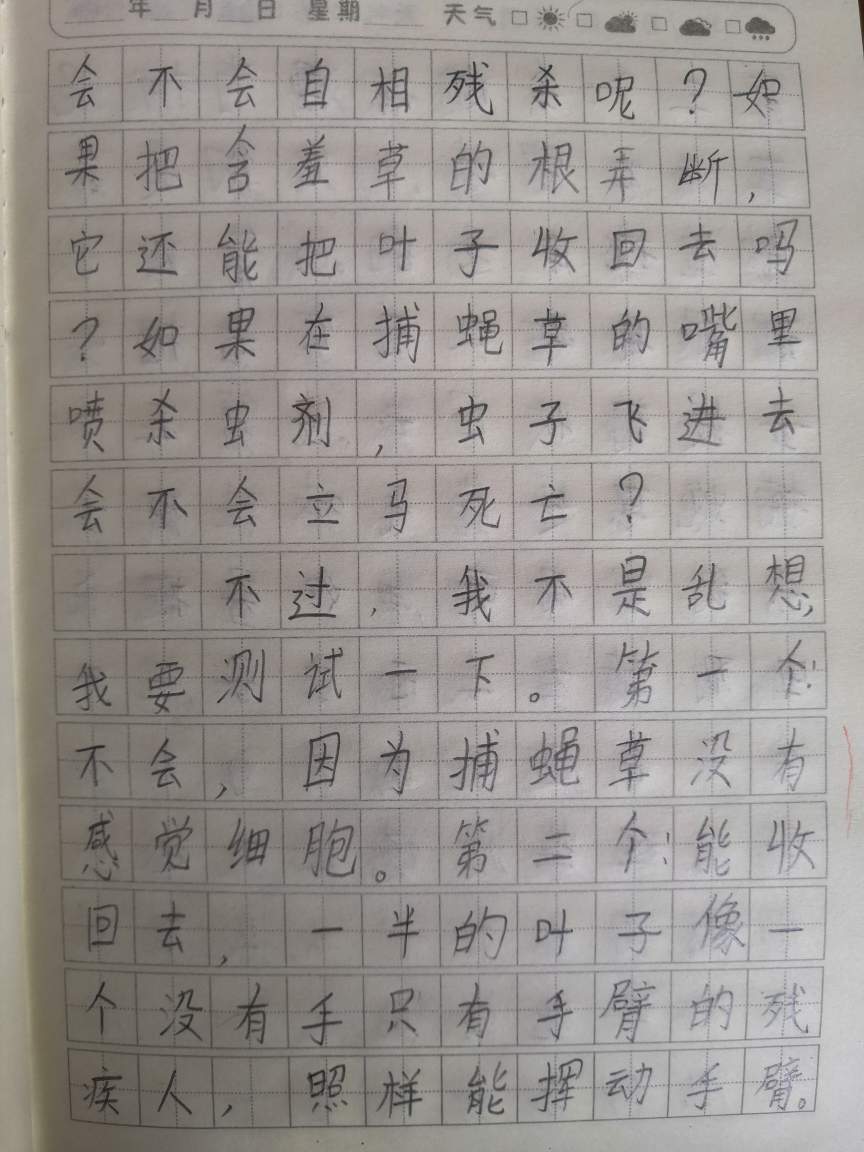 年 月 日 星期 天气
会不会自相残杀呢？如
果把含羞草的根弄断，
它还能把叶子收回去吗
？如果在捕蝇草的嘴里
喷杀虫剂，虫子飞进去
会不会立马死亡？
不过，我不是乱想，
我要测试一下。第一个：
不会，因为捕蝇草没有
感觉细胞。第二个：能收
回去，一半的叶子像一
个没有手只有手臂的残
疾人，照样能挥动手臂。